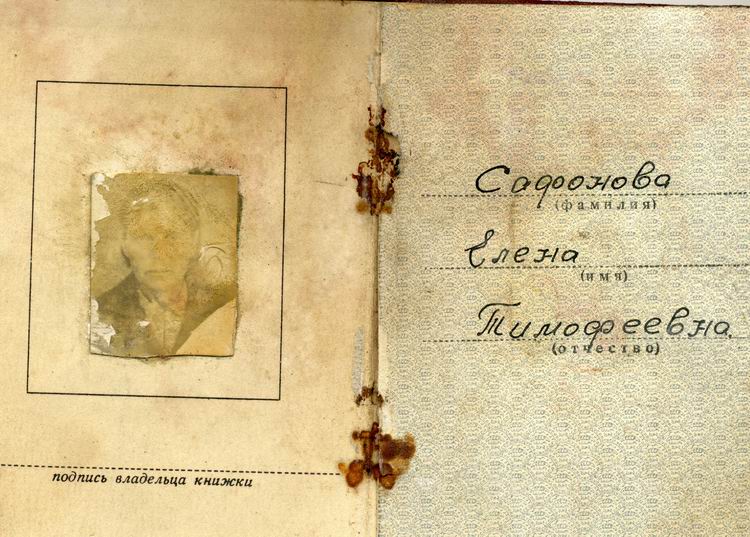 подпись владельца книжки
Сафонова
(фамилия)
Елена
(имя)
Тимофеевна
(отчество)